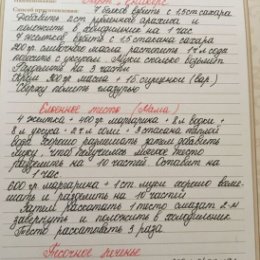 Способ приготовления:
4 белка взбить с 1,5 ст сахара
добавить 1 ст рубленного арахиса и
положить в холодильник на 1 час
4 желтков взбить с 1,5 стакана сахара
200 гр. сливочное масла растопить 1 ч л сода
погасить с уксусом. Муки сколько возьмёт
Разделить на 3 части
Крем 300 гр масла + 1б сгущенки (вар.)
Сверху полить глазурью
Слоенное тесто (Мама)
4 желтка + 400 гр. маргарина + 8 л водки +
8 л уксуса + 2 ч л соли + 3 стакана теплой
воды. Хорошо размешать затем добавить
муку, чтоб получилось мягкое тесто
разделить на 10 частей. Оставит на
1 час
600 гр. маргарина + 1 ст. муки хорошо выме
шать и разделить на 10 частей
Затем раскатать 1 тесто смазат 2 м
завернуть и положить в холодильник
Тесто раскатоват 3 раза
Песочное печенье